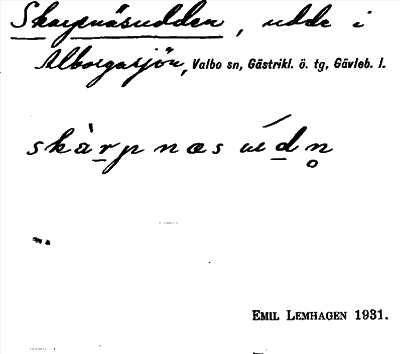 Skarpnäsudden, udde i
Alborgasjön, Valbo sn, Gästrikl. ö. tg, Gävleb. l.
skàrpnæsúdn̥
EMIL LEMHAGEN 1931.